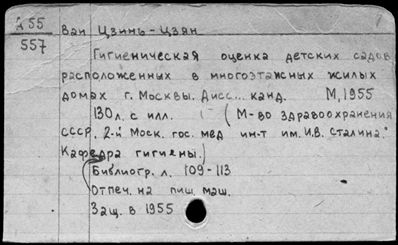 Д 55
557
Ван Цзинь-Цзян
Гигиеническая оценка детских садов
расположенных в многоэтажных жилых
домах г. Москвы. Дисс... канд. М, 1955
130 л. с илл. (М-во здравоохранения
СССР. 2-й Моск. гос. мед ин-т им. И.В. Сталина.
Кафедра гигиены.)
Библиогр. л. 109-113
Отпеч. на пиш. маш.
Защ. в 1955